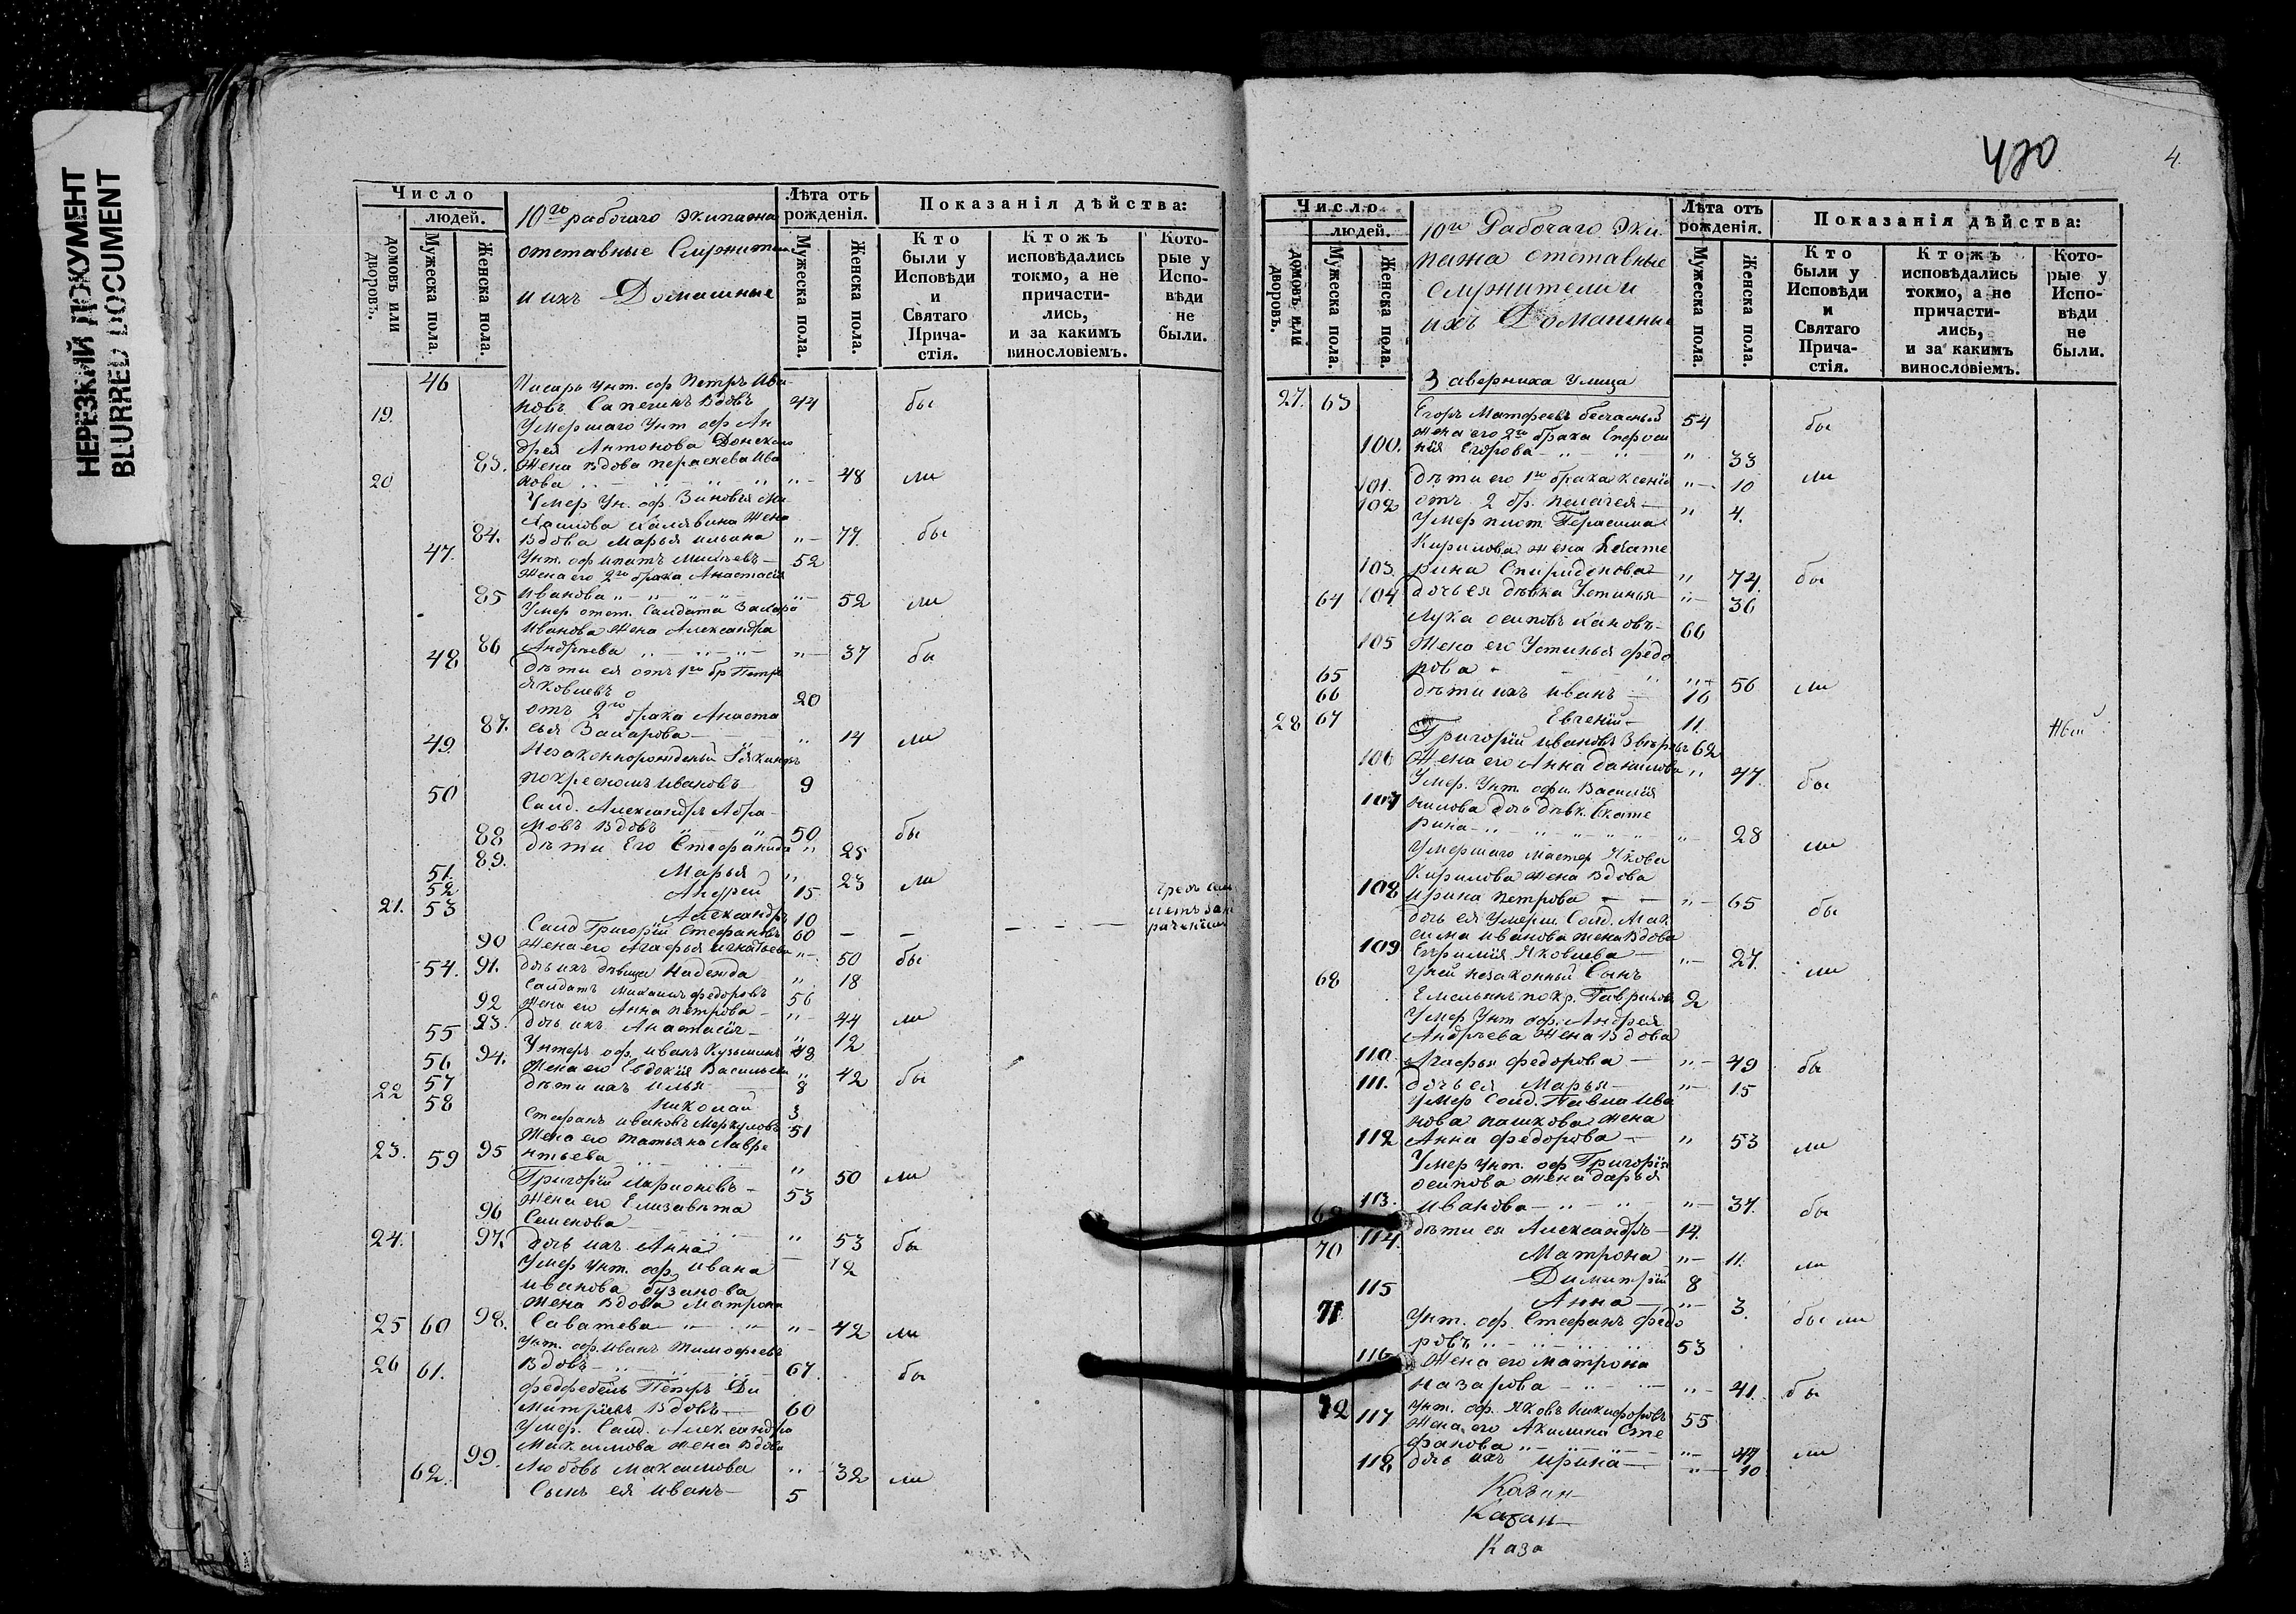 НЕРЕЗКИЙ ДОКУМЕНТ
BLURRED DOCUMENT
Число
людей.
домовъ или дворовъ.
Мужеска пола.
Женска пола.
10го рабочаго Экипажа
отставные Служители
и ихъ Домашные
Лѣта отъ рожденія.
Мужеска пола.
Женска пола.
Показанія дѣйства:
Кто были у Исповѣди и Святаго Причастія.
Ктожъ исповѣдались токмо, а не причастились, и за какимъ винословіемъ.
Которые у Исповѣди не были.
46 Писарь Унт. оф Петръ Ива
новъ Сапегинъ Вдовъ 44 бы
19. Умершаго Унт оф Ан
дрея Антонова Донскаго
83. Жена вдова параскева Ива
нова 48 ли
20 Умер Ун. оф. Зиновья
Жена
84. Вдова Марья ильина 77 бы
47. Унт. оф ипатъ 52
Жена его 2го брака Анастасія
85 Иванова 52 ли
Умер отст. Салдата Захара
Иванова Жена Александра
86 Андреева 37 бы
48 дѣти ея отъ 1го бр Петръ
Яковлевъ 20
отъ 2го брака Анаста
87. сья Захарова 14 ли
49. Незаконнорожденый
покресномъ Ивановъ 9
50 Салд. Александръ Абра
мовъ Вдовъ 50 бы
88 дѣти Его Стефанида 25
89. Марья 23 ли
51. Андрей 15
52 Александръ 10
21. 53 Салд Григорій Стефановъ 60
90 Жена его Агафья игнатьева 50 бы
91. дочь ихъ дѣвица Надежда 18
54. Салдатъ Михаилъ федоровъ 56
92 Жена его Анна петрова 44 ли
93. дочь ихъ Анастасія 12
55 Унтеръ оф. иванъ Кузьминъ 48
94. Жена его Евдокія Васильева 42 бы
56 дѣти ихъ илья 8
57 Николай 3
22 58 Стефанъ ивановъ Меркуловъ 51
Жена его татьяна Лавре
95 нтьева 50 ли
23. 59 Григорій Ларионовъ 53
Жена его Елизавета
96 Семенова 53 бы
97. дочь ихъ Анна 12
24. Умер Унт. оф. ивана
иванова бузанова
Жена Вдова Матрона
98. Саватева 42 ли
25 60 Унт. оф. Иванъ Тимофеевъ
Вдовъ 67. бы
26 61. фелдфебель Петръ Ди
митріевъ Вдовъ 60
Умер. Салд. Александра
Максимова жена Вдова
99. Любовь Максимова 32 ли
62. Сынъ ея иванъ 5
480
4
Число
людей.
домовъ или дворовъ.
Мужеска пола.
Женска пола.
10го Рабочаго Эки
пажа отставные
служители и
ихъ Домашные
Лѣта отъ рожденія.
Мужеска пола.
Женска пола.
Показанія дѣйства:
Кто были у Исповѣди и Святаго Причастія.
Ктожъ исповѣдались токмо, а не причастились, и за какимъ винословіемъ.
Которые у Исповѣди не были.
улица
27. 63 Егоръ Матфеевъ 54 бы
жена его 2го брака Ефроси
100. нія Егорова 33
101. дѣти его 1го брака Ксенія 10 ли
102 отъ 2 бр. пелагея 4.
Умер плот. Герасима
Кирилова жена Екате
103. рина Спиридонова 74. бы
104 дочь ея дѣвка Устинья 36
64 Лука осиповъ 66
105 Жена его Устинья федо
рова 56 ли
65 дѣти ихъ иванъ 16
66 Евгеній 11.
28 67 Григорій ивановъ 62
106 Жена его Анна данилова 47. бы
Умер. Унт. офи. Василія
107 дочь дѣвк. Екате
рина 28 ли
Умершаго мастер Якова
Кирилова жена Вдова
108 ирина петрова 65 бы
дочь ея Умерш. Салд. Мак
сима иванова жена Вдова
109 Евфимія Яковлева 27. ли
68 Уней незаконный Сынъ
Емельянъ по кр. Гаврилов. 2
Умер Унт. оф. Андрея
Андреева Жена Вдова
110. Агафья федорова 49 бы
111. дочь ея Марья 15
Умер Салд. Павла Ива
нова пашкова жена
112 Анна федорова 53 ли
Умер Унт. оф Григорія
осипова жена дарья
113. иванова 37. бы
69 дѣти ея Александръ 14.
114. Матрона 11. ли
70 Димитрій 8
115 Анна 3. бы ли
71. Унт. оф. Стефанъ федо
ровъ 53
116 Жена его матрона
назарова 41. бы
72 Унт. оф. Яковъ Никифоровъ 55
117 Жена его Акилина Сте
фанова 44 ли
118 дочь ихъ ирина 10
Казан
Казан
Каза